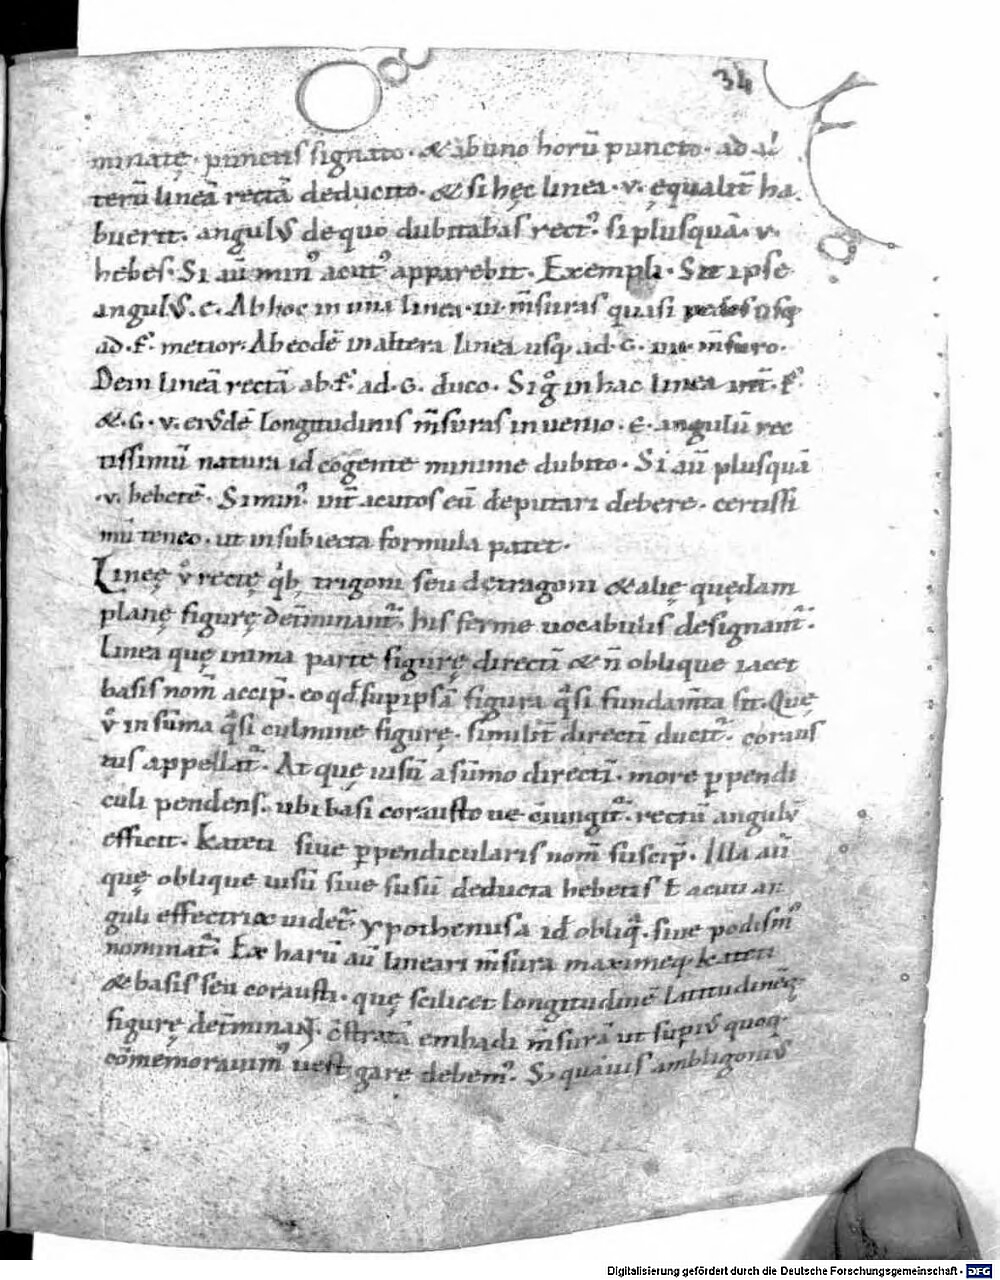 34
minatę · punctis signato · & ab uno horū puncto · ad al
terū lineā rectā deducito · & si hęc linea · v · ęqualit̄ ha
buerit · angulꝰ de quo dubitabas rectꝰ · si plusquā · v ·
hebes · Si aū minꝰ acutꝰ apparebit · Exempli · Sit ipse
angulꝰ · e · Ab hoc in una linea · m̄suras quasi usq;
ad · f · metior · Ab eodē in altera linea usq; ad · G · m̄suro ·
Dein lineā rectā ab · f · ad · G · duco · Si g̊ in hac linea int̄ · f ·
& · G · v · eiꝰdē longitudinis m̄suras invenio · e · angulū rec
tissimū natura id cogente minime dubito · Si aū plusquā
· v · hebetē · Si minꝰ int̄ acutos eū deputari debere · certissi
mū teneo · ut in subiecta formula patet ·
Lineę v̊ rectę qͥb; trigoni seu detragoni & alię quędam
planę figurę det̄minant᷑ · his ferme vocabulis designant᷑ ·
Linea quę in ima parte figurę directī & n̄ oblique iacet
basis nom̄ accip̄ · eo qđ sup ipsā figura qͣsi fundam̄ta sit · Quę
v̊ in sūma qͣsi culmine figurę · similit̄ directī ducit᷑ · coraus
tus appellat᷑ · At quę iusū a sūmo directī · more ꝑpendi
culi pendens · ubi basi corausto ve ɔ̄iungit᷑ · rectū angulū
efficit · kateti sive ꝑpendicularis nom̄ suscip̄ · Illa aū
quę oblique iusū sive susū deducta hebetis ł acuti an
guli effectrix videt᷑ · ypothenusa id obliq̄ · sive podismꝰ
nominat᷑ · Ex harū aū lineari m̄sura maximeq; kateti
& basis seu corausti · quę scilicet longitudinē latitudinēq;
figurę det̄minaɴꝫ · embadi m̄surā ut supiꝰ quoq;
cōmemoravimꝰ vestigare debemꝰ · S; quāvis ambligoniꝰ
Digitalisierung gefördert durch die Deutsche Forschungsgemeinschaft - DFG